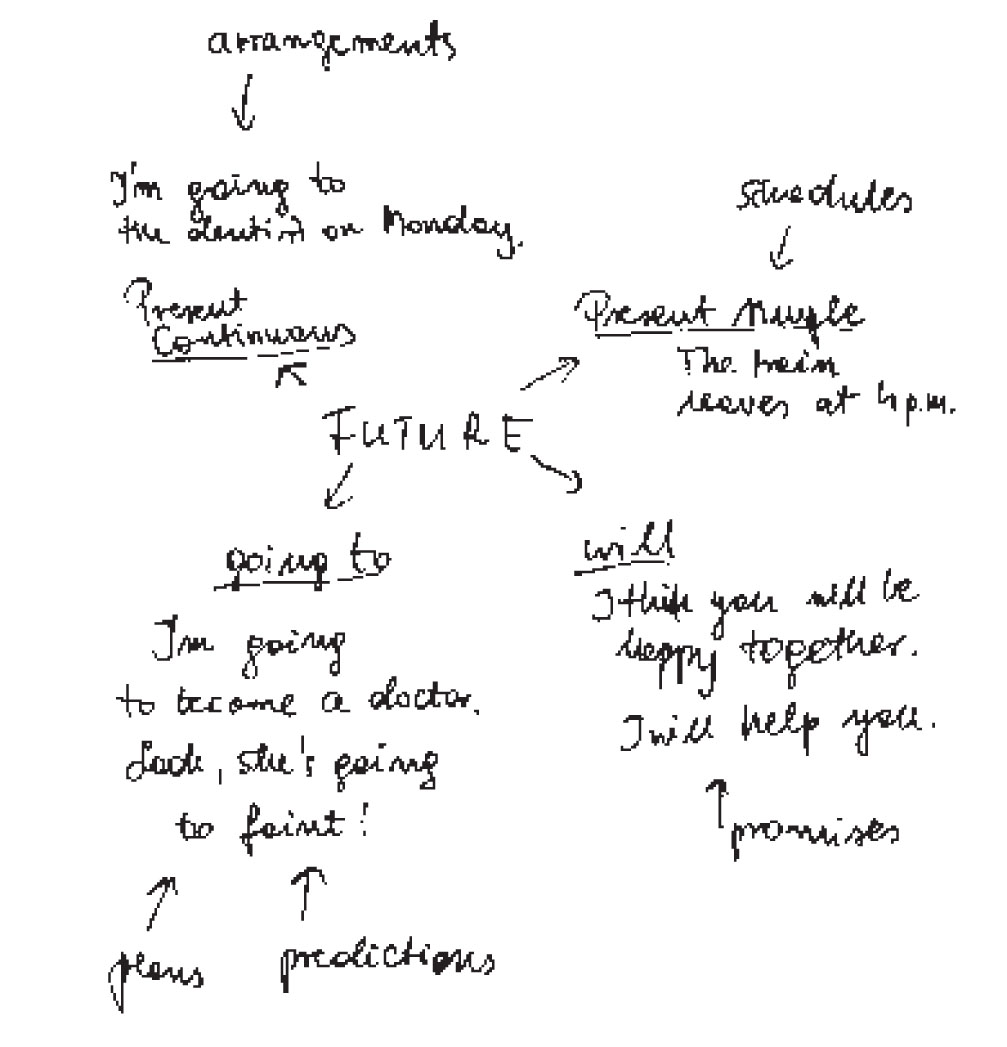 arrangements
I'm going to
the dentist on Monday.
Present
Continuous
schedules
Present Simple
The train
leaves at 4 p.m.
FUTURE
going to
I'm going
to become a doctor.
Look, she's going
to faint!
plans
predictions
will
I think you will be
happy together.
I will help you.
promises